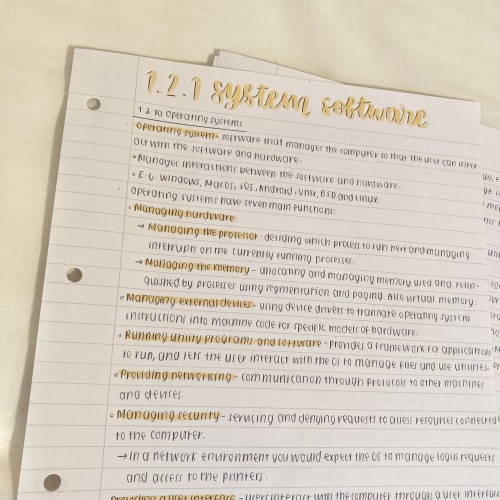 1.2.1 system software
1.2.1a) operating systems
operating system - software that manages the computer so that the user can inter-
act with the software and hardware.
• Manager interactions between the software and hardware.
• E.G. Windows, MacOS, iOS, Android, Unix, BSD and Linux.
operating systems have seven main functions:
• Managing hardware:
→ Managing the processor - deciding which process to run next and managing
interrupts on the currently running processes.
→ Managing the memory - allocating and managing memory used and relin-
quished by processes using segmentation and paging. Also virtual memory.
• Managing external devices - using device drivers to translate operating system
instructions into machine code for specific models of hardware.
• Running utility programs and software - provides a framework for applications
to run, and lets the user interact with the OS to manage files and use utilities.
• Providing networking - communication through protocols to other machines
and devices.
• Managing security - servicing and denying requests to access resources connected
to the computer.
→ In a network environment you would expect the OS to manage login requests
and access to the printers.
providing a user interface - users interact with the computer through a user interface